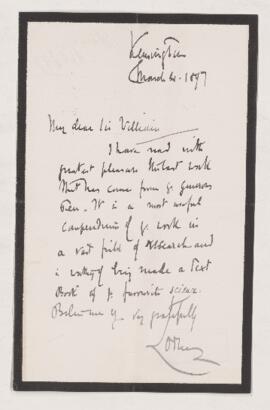 Kensington
March 4. 1897
My dear Sir William
I have read with
greatest pleasure the last work
that has come from yr generous
Pen. It is a most useful
compendium of yr work in
a vast field of Research and
is worthy of being made a Text
Book of yr favourite science.
Believe me yrs very gratefully